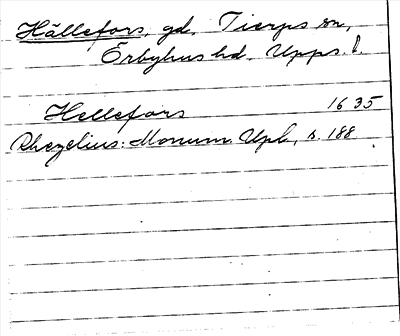 Hällefors, gd, Tierps sn,
Örbyhus hd. Upps. l.
Hellefors 1635
Rhezelius: Monum. Upl., s. 188